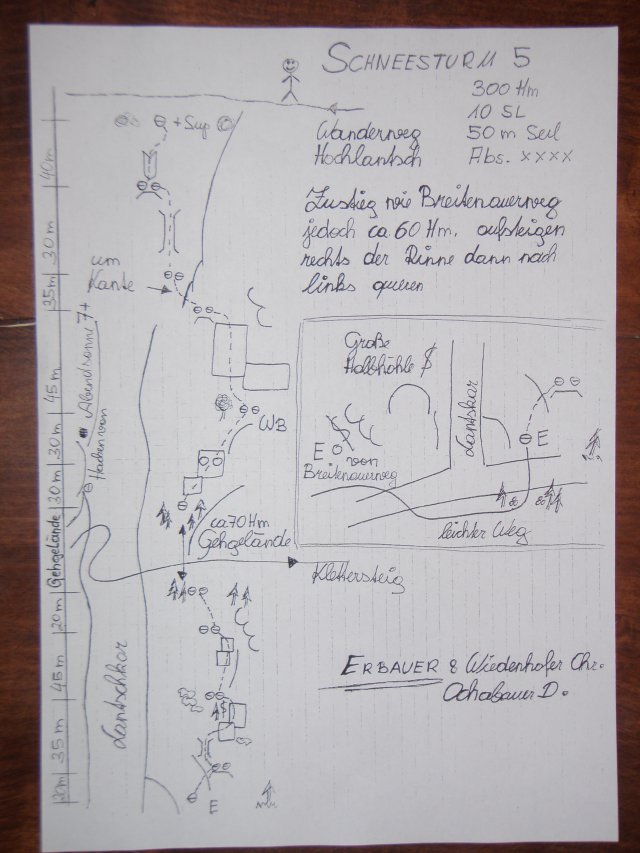 SCHNEESTURM 5
300 Hm
10 SL
Wanderweg 50 m Seil
Hochlantsch Abs. xxxx
+ Sup
Zustieg wie Breitenauerweg
jedoch ca. 60 Hm. aufsteigen
rechts der Rinne dann nach
links queren
um
Kante
Große
Halbhöhle
Lantskar
E
E von
Breitenauerweg
leichter Weg
WB
ca 70 Hm
Gehgelände
Klettersteig
ERBAUER & Wiedenhofer Chr.
Ochabauer D.
Abendsonne 7+
Lantschkar
E
40 m
30 m
35 m
45 m
30 m
30 m
Gehgelände
20 m
45 m
35 m
20m